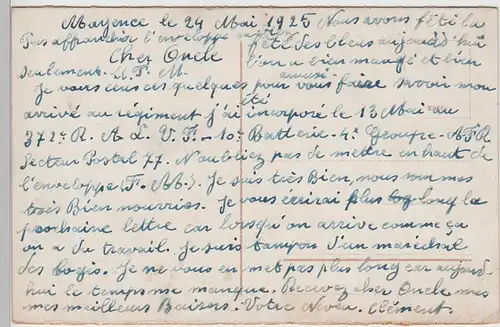 Mayence le 24 Mai 1925 Nous avons fêté la
Pas affranchir l'enveloppe mettre fête des bleus aujourd'hui
Cher Oncle l'on a bien mangé et bien
seulement. F.M. amusé
Je vous ces quelques pour vous faire savoir mon
arrivé au régiment j'ai été incorporé le 13 Mai au
372e R. A. L. V. F. - 10e Batterie. 4e Groupe - A F R
Secteur Postal 77. N'oubliez pas de mettre en haut de
l'enveloppe (F. M.). Je suis très Bien, nous sommes
très Bien nourries. Je vous écrirai plus long la
prochaine lettre car lorsqu'on arrive comme ça
on a du travail. Je suis tampon d'un maréchal
des logis. Je ne vous en met pas plus long car aujourd-
hui le temps me manque. Recevez cher Oncle mes
mes meilleurs Baisers. Votre Neveu. Clément.